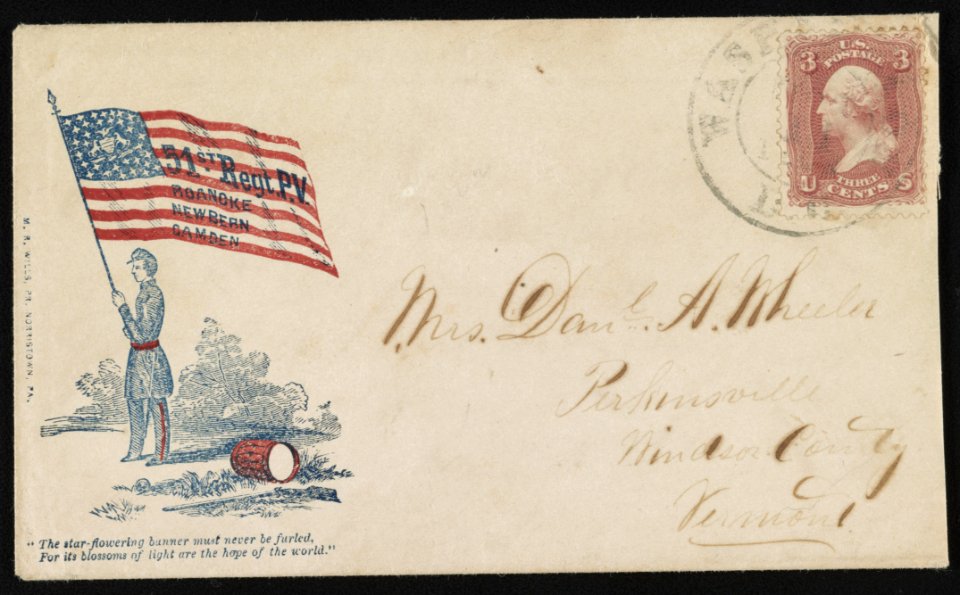 51ST Regt. P.V.
ROANOKE
NEWBERN
CAMDEN
M. R. WILLS, PR. NORRISTOWN, PA.
"The star-flowering banner must never be furled,
For its blossoms of light are the hope of the world."
WASH
3 U.S. 3
POSTAGE
THREE
U CENTS S
Mrs. Danl. A. Wheeler
Perkinsville
Windsor County
Vermont